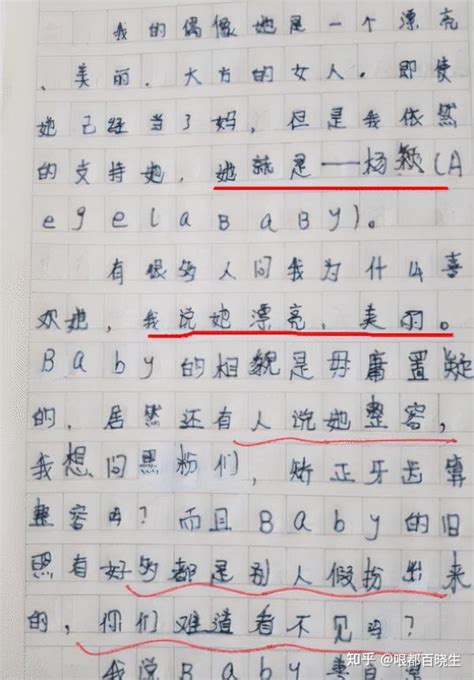 我的偶像她是一个漂亮
、美丽、大方的女人。即使
她已经当了妈,但是我依然
的支持她,她就是——杨颖(A
egelaBaBy)。
有很多人问我为什么喜
欢她,我说她漂亮、美丽。
Baby的相貌是毋庸置疑
的,居然还有人说她整容,
我想问黑粉们,矫正牙齿算
整容吗?而且Baby的旧
照有好多都是别人假扮出来
的,你们难道看不见吗?
我说Baby美
知乎 @哏都百晓生